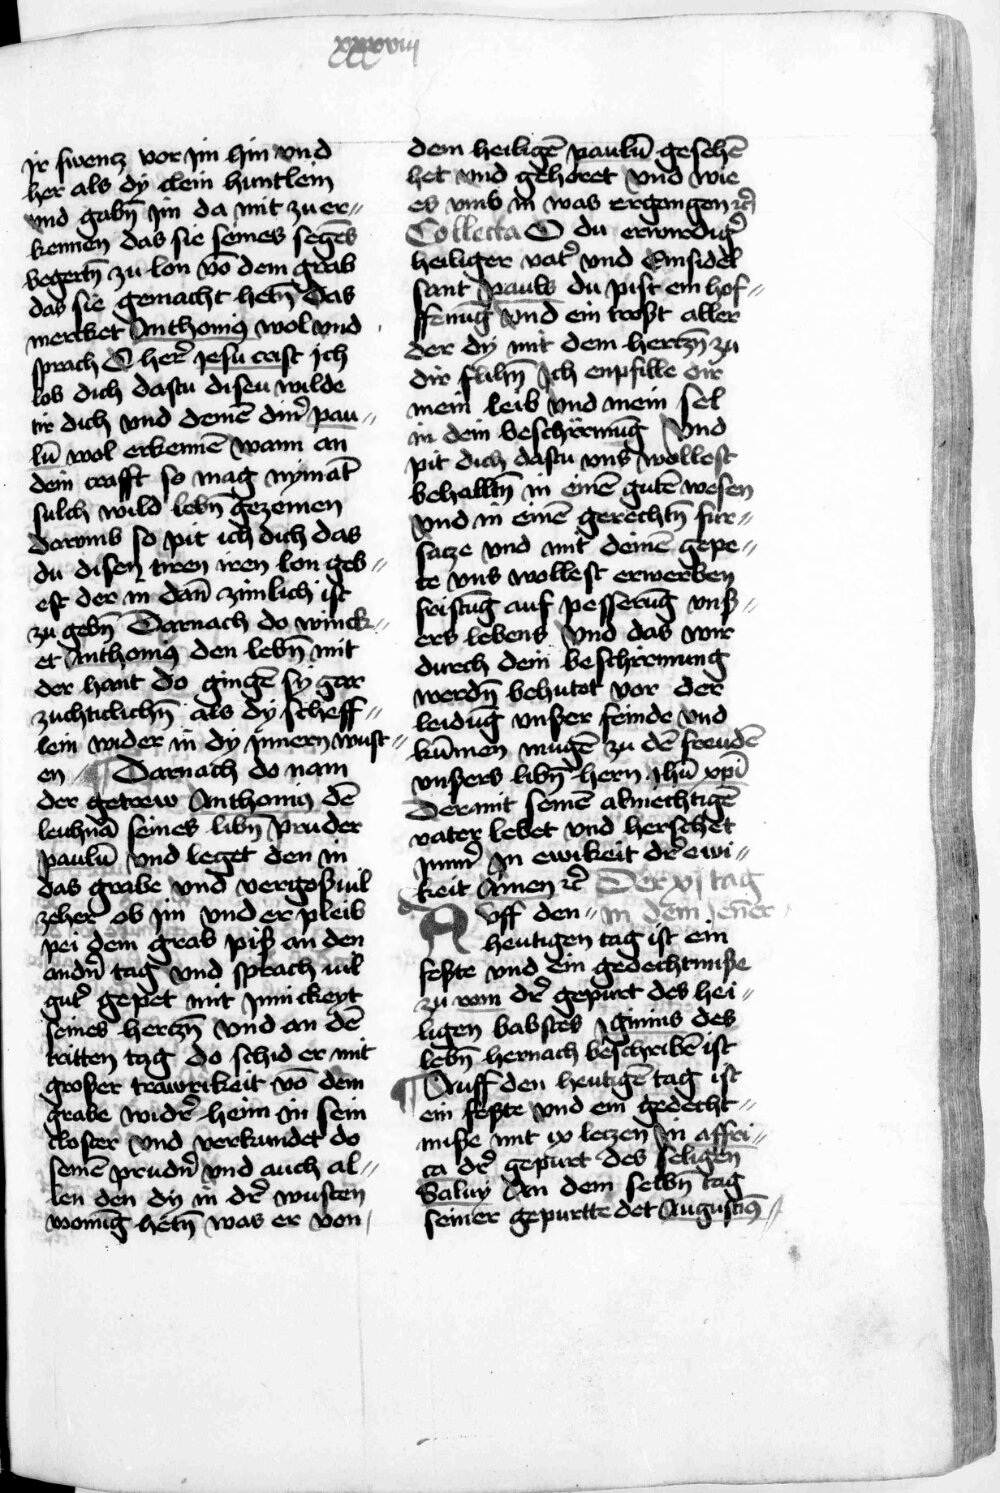 xxxviii
ir swencz vor im hin und
her als dy clein huntlein
vnd gabn̄ im da mit zu er〃
kennen das sie seines segēs
begertn̄ zu lon vō dem grab
das sie gemacht hetn̄ Das
mercket Anthoniꝯ wol vnd
sprach O her᷑ jesu crist jch
lob dich dastu disen wilde
tir dich vnd deinē din᷑ pau〃
lū wol erkennē wann an
dein crafft so mag nymāt
sulch wild lebn̄ gezemen
Darvmb so pit ich dich das
du disen tiren iren lon geb〃
est der in dān zimlich ist
zu gebn̄ Darnach do winck〃
et Anthoniꝯ den lebn̄ mit
der hant do gingē sy gar
zuchticlichn̄ als dy scheff〃
lein wider in dy jnnern wust〃
en ¶ Darnach do nam
der getrew Anthoniꝯ dē
leichnā seines libn̄ pruder
paulū vnd leget den in
das grabe vnd vergoß vil
zeher ob im vnd er pleib
pei dem grab piß an den
andn᷑ tag vnd sprach vil
gut᷑ gepet mit jnnickeyt
seines hertzn̄ vnd an dē
tritten tag do schid er mit
großer trawrikeit vō dem
grabe widr᷑ heim in sein
closter vnd verkundet do
seinē prudn᷑ vnd auch al〃
len den dy in dr᷑ wusten
wonūg hetn̄ was er von
dem heiligē paulū gesehē
het vnd gehoret vnd wie
es vmb in was ergangen ⁊c̄
Collecta O du erwirdig᷑
heiliger vat᷑ vnd Einsidel
sant pauls du pist ein hof〃
ffenūg vnd ein trost aller
der dy mit dem hertzn̄ zu
dir flihn̄ Ich enpfille dir
mein leib vnd mein sel
in dein beschirmūg Vnd
pit dich dastu vns wollest
behalltn̄ in einē gutē wesen
vnd in einē gerechtn̄ fur〃
satze vnd mit deinē gepe〃
te vns wollest erwerben
fristūg auf pesserūg vnß〃
ers lebens Vnd das wir
durch dein beschirmung
werdn̄ behutet vor der
leidūg vnßer feinde vnd
kūmen mugē zu dē freudē
vnßers libn̄ hern ihū xp̄i
Der mit seinē almechtigē
vater lebet vnd herschet
jmm᷑ in ewikeit dr᷑ ewi〃
keit Amen ⁊c̄ Der xj tag
Auff den〃 in dem jenner
heutigen tag ist ein
feßte vnd ein gedechtnuße
zu rom dr᷑ gepurt des hei〃
ligen babstes iginius des
lebn̄ hernach beschribē ist
¶ Auff den heutigē tag ist
ein feßte vnd ein gedecht〃
nuße mit ix letzen in affri〃
ca dr᷑ gepurt des seligen
Saluy An dem selbn̄ tag
seiner gepurtte det Augustīꝯ〃